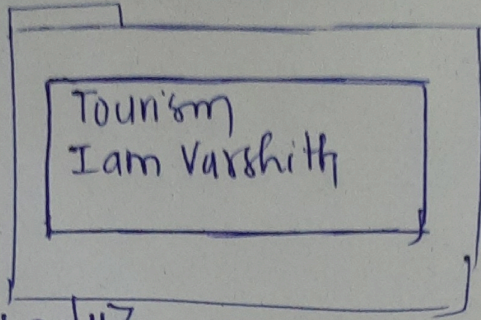 Tourism
I am Varshith